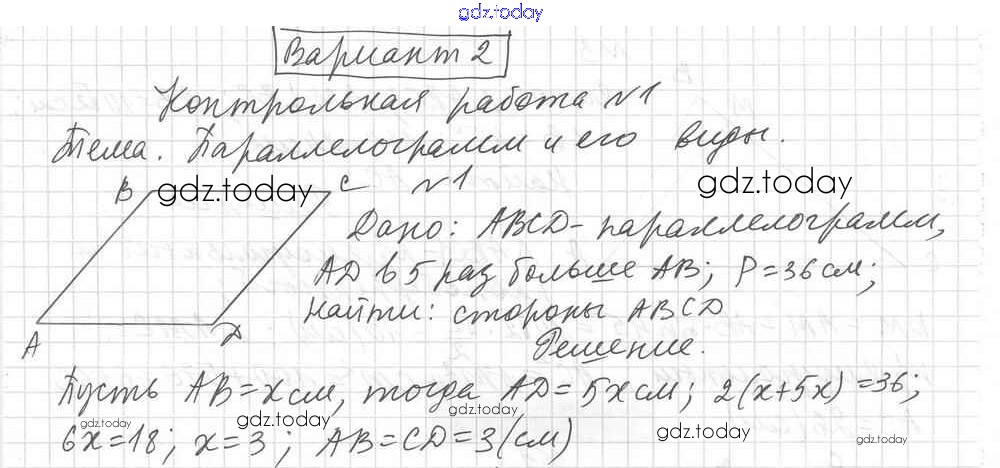 gdz.today
Вариант 2
Контрольная работа №1
Тема. Параллелограмм и его виды.
B gdz.today C №1 gdz.today
Дано: ABCD - параллелограмм,
AD в 5 раз больше AB; P = 36 см;
Найти: стороны ABCD
A D Решение.
Пусть AB = x см, тогда AD = 5x см; 2(x+5x) = 36;
gdz.today gdz.today gdz.today
6x = 18; x = 3; AB = CD = 3 (см)
gdz.today gdz.today gdz.today